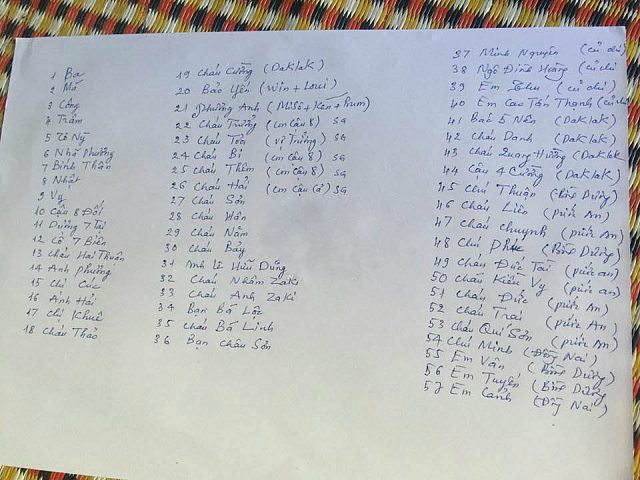 1 Ba
2 Má
3 Công
4 Trâm
5 Tê Ny
6 Nhã Phương
7 Bình Thân
8 Nhật
9 Vy
10 Cậu 8 Đổi
11 Dường 7 Tài
12 Cô 7 Biên
13 cháu Hai Thuân
14 Anh phương
15 chị Cúc
16 Anh Hải
17 chị Khuê
18 cháu Thảo
19 cháu Cường (Daklak)
20 Bảo Yến (Win + Loui)
21 Phương Anh (MiSo + Ken + Rum)
22 Cháu Trường (cm cậu 8) SG
23 Cháu Toa (vợ Trường) SG
24 Cháu Bi (cm cậu 8) SG
25 Cháu Thêm (cm Cậu 8) SG
26 Cháu Hải (cm cậu 8) SG
27 Cháu Sơn
28 Cháu Hân
29 Cháu Năm
30 Cháu Bảy
31 Anh Lí Hữu Dũng
32 Cháu Nhâm Zaki
33 Cháu Anh Zaki
34 Bạn Bá Lộc
35 Cháu Bá Linh
36 Bạn Châu Sơn
37 Minh Nguyên (củ chi)
38 Ngô Đình Hoàng (củ chi)
39 Em Thu (củ chi)
40 Em Cao Tấn Thạnh (củ chi)
41 Bác 5 Nên (Daklak)
42 Cháu Danh (Daklak)
43 Cháu Quang Hường (Daklak
44 Cậu 4 Cường (Daklak)
45 Chú Thuận (Bình Dương)
46 Cháu Liêu (phước An)
47 Cháu chuynh (phước An)
48 Chú Phúc (Bình Dương)
49 Cháu Đức Tài (phước an)
50 Cháu Kiều Vy (phước an)
51 Cháu Đức (phước An)
52 Cháu Trai (phước An)
53 Cháu Quí Sơn (phước An)
54 Chú Minh (Đồng Nai)
55 Em Vân (Bình Dương)
56 Em Tuyến (Bình Dương
57 Em Cảnh (Đồng Nai)